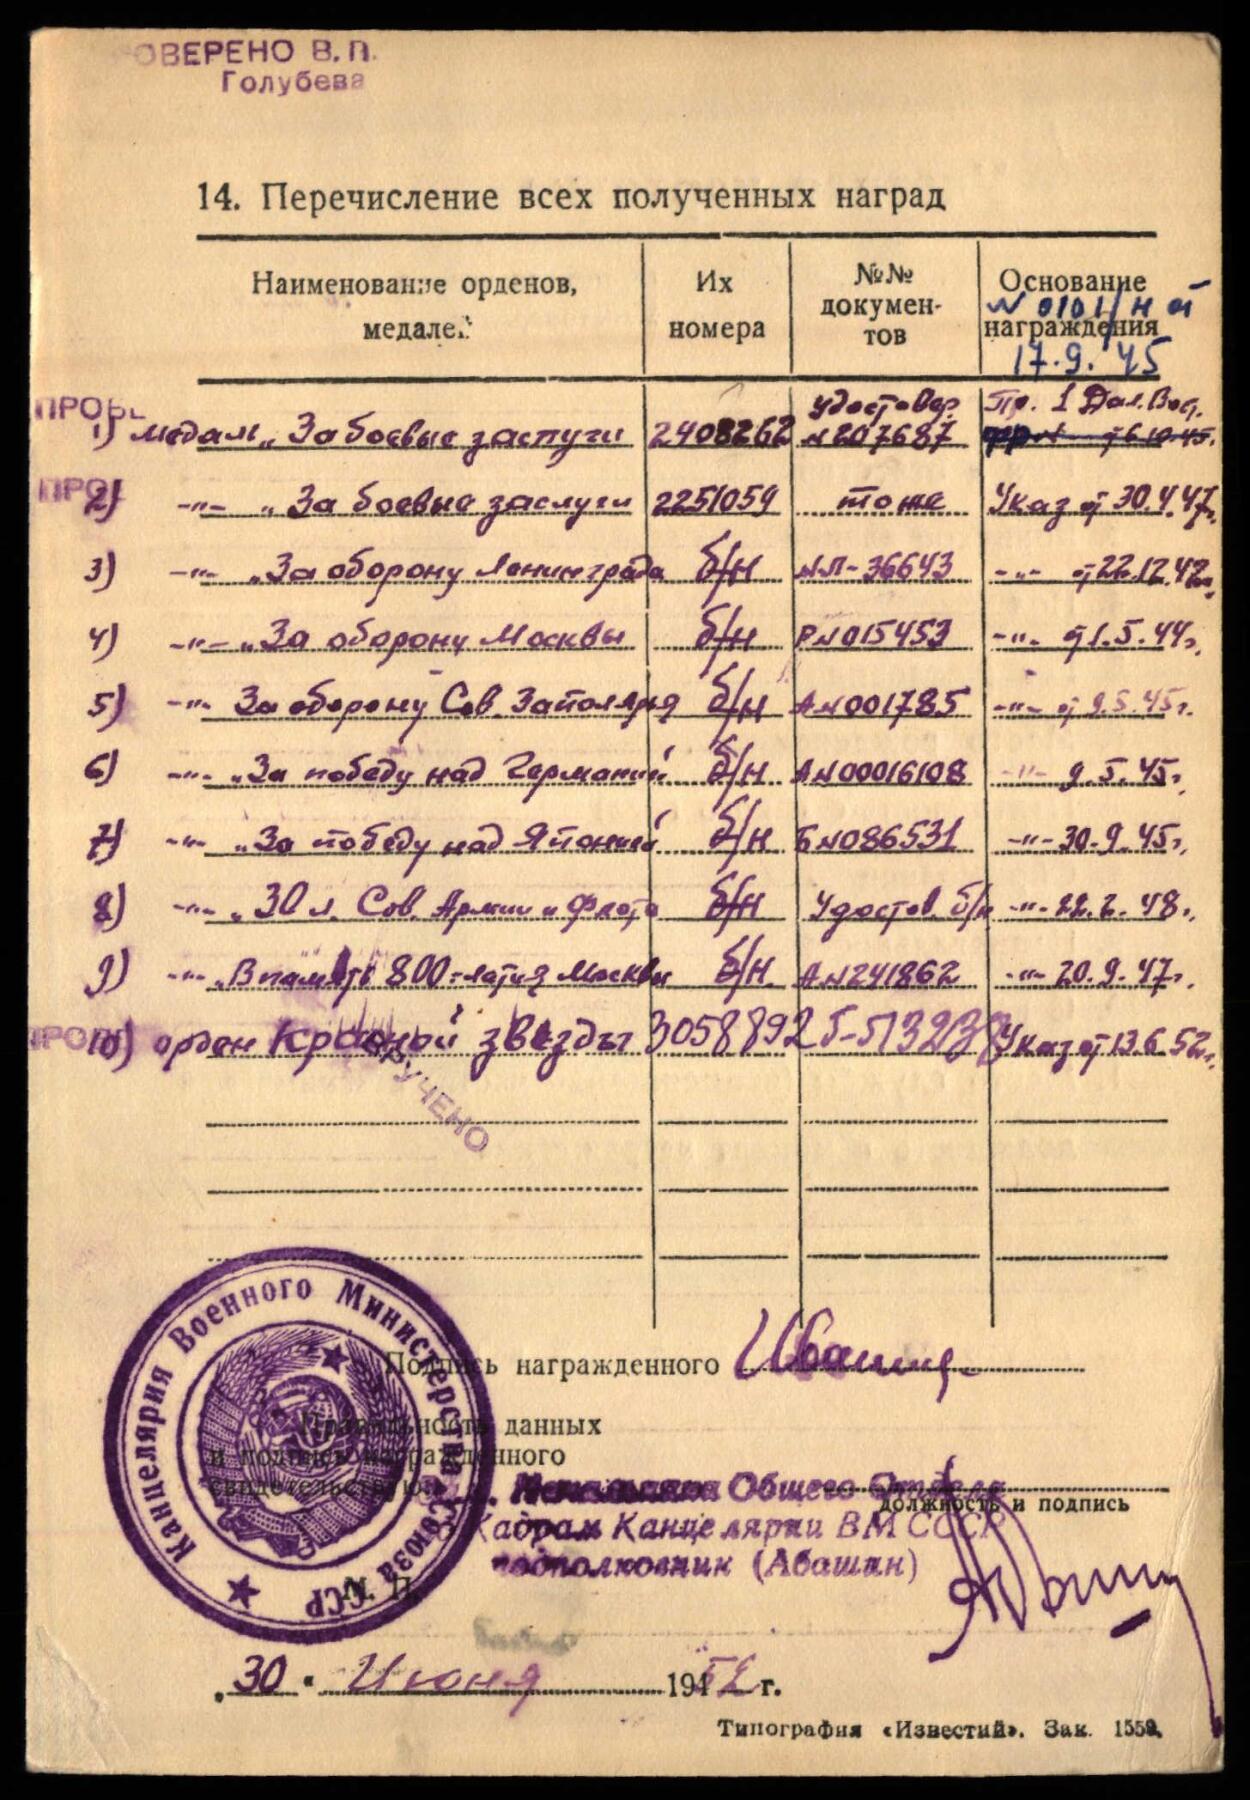 ПРОВЕРЕНО В. П.
Голубева
14. Перечисление всех полученных наград
Наименование орденов, медалей
Их номера
№№ документов
Основание награждения
N 0101/н от 17.9.45
1) медаль „За боевые заслуги 2408262 удостовер. N 207687 Пр. 1 Дал. Вост. от 6.10.45.
2) -"- „За боевые заслуги 2251059 тоже Указ от 30.4.47г.
3) -"- „За оборону Ленинграда б/н АЛ-36643 -"- от 22.12.42г.
4) -"- „За оборону Москвы б/н РN015453 -"- от 1.5.44г.
5) -"- За оборону Сов. Заполярья б/н АN001785 -"- от 9.5.45г.
6) -"- „За победу над Германией б/н АN00016108 -"- 9.5.45г.
7) -"- „За победу над Японией б/н БN086531 -"- 30.9.45г.
8) -"- „30 л. Сов. Армии и Флота б/н Удостов. б/н -"- 22.2.48г.
9) -"- „В память 800-летия Москвы б/н. АN241862 -"- 20.9.47г.
10) орден Красной звезды 3058892 Б-П3238 Указ от 13.6.52г.
ВРУЧЕНО
Подпись награжденного
Правильность данных
и подпись награжденного
свидетельствую
Общего Отдела
должность и подпись
Кадрам Канцелярии ВМ СССР
подполковник (Абашин)
Канцелярия Военного Министерства Союза ССР
М. П.
„30" Июня 1952 г.
Типография «Известий». Зак. 1559.